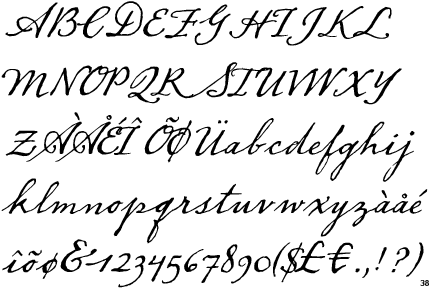 ABCDEFGHIJKL
MNOPQRSTUVWXY
ZÀÅÉÎÕØÜabcdefghij
klmnopqrstuvwxyzàåé
îõø&1234567890($£€.,!?)
38